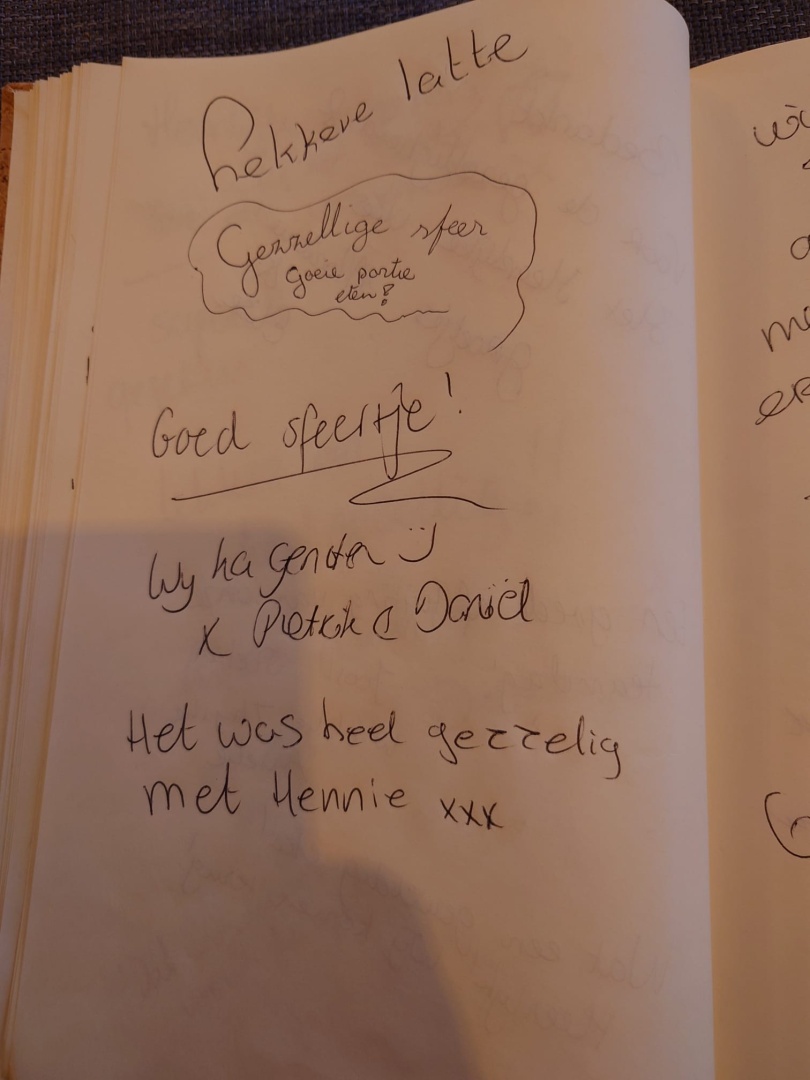 Lekkere latte
Gezzellige sfeer
Goeie portie
eten!
Goed sfeertje!
Wy ha genoten :)
x & Daniël
Het was heel gezzelig
met Hennie xxx